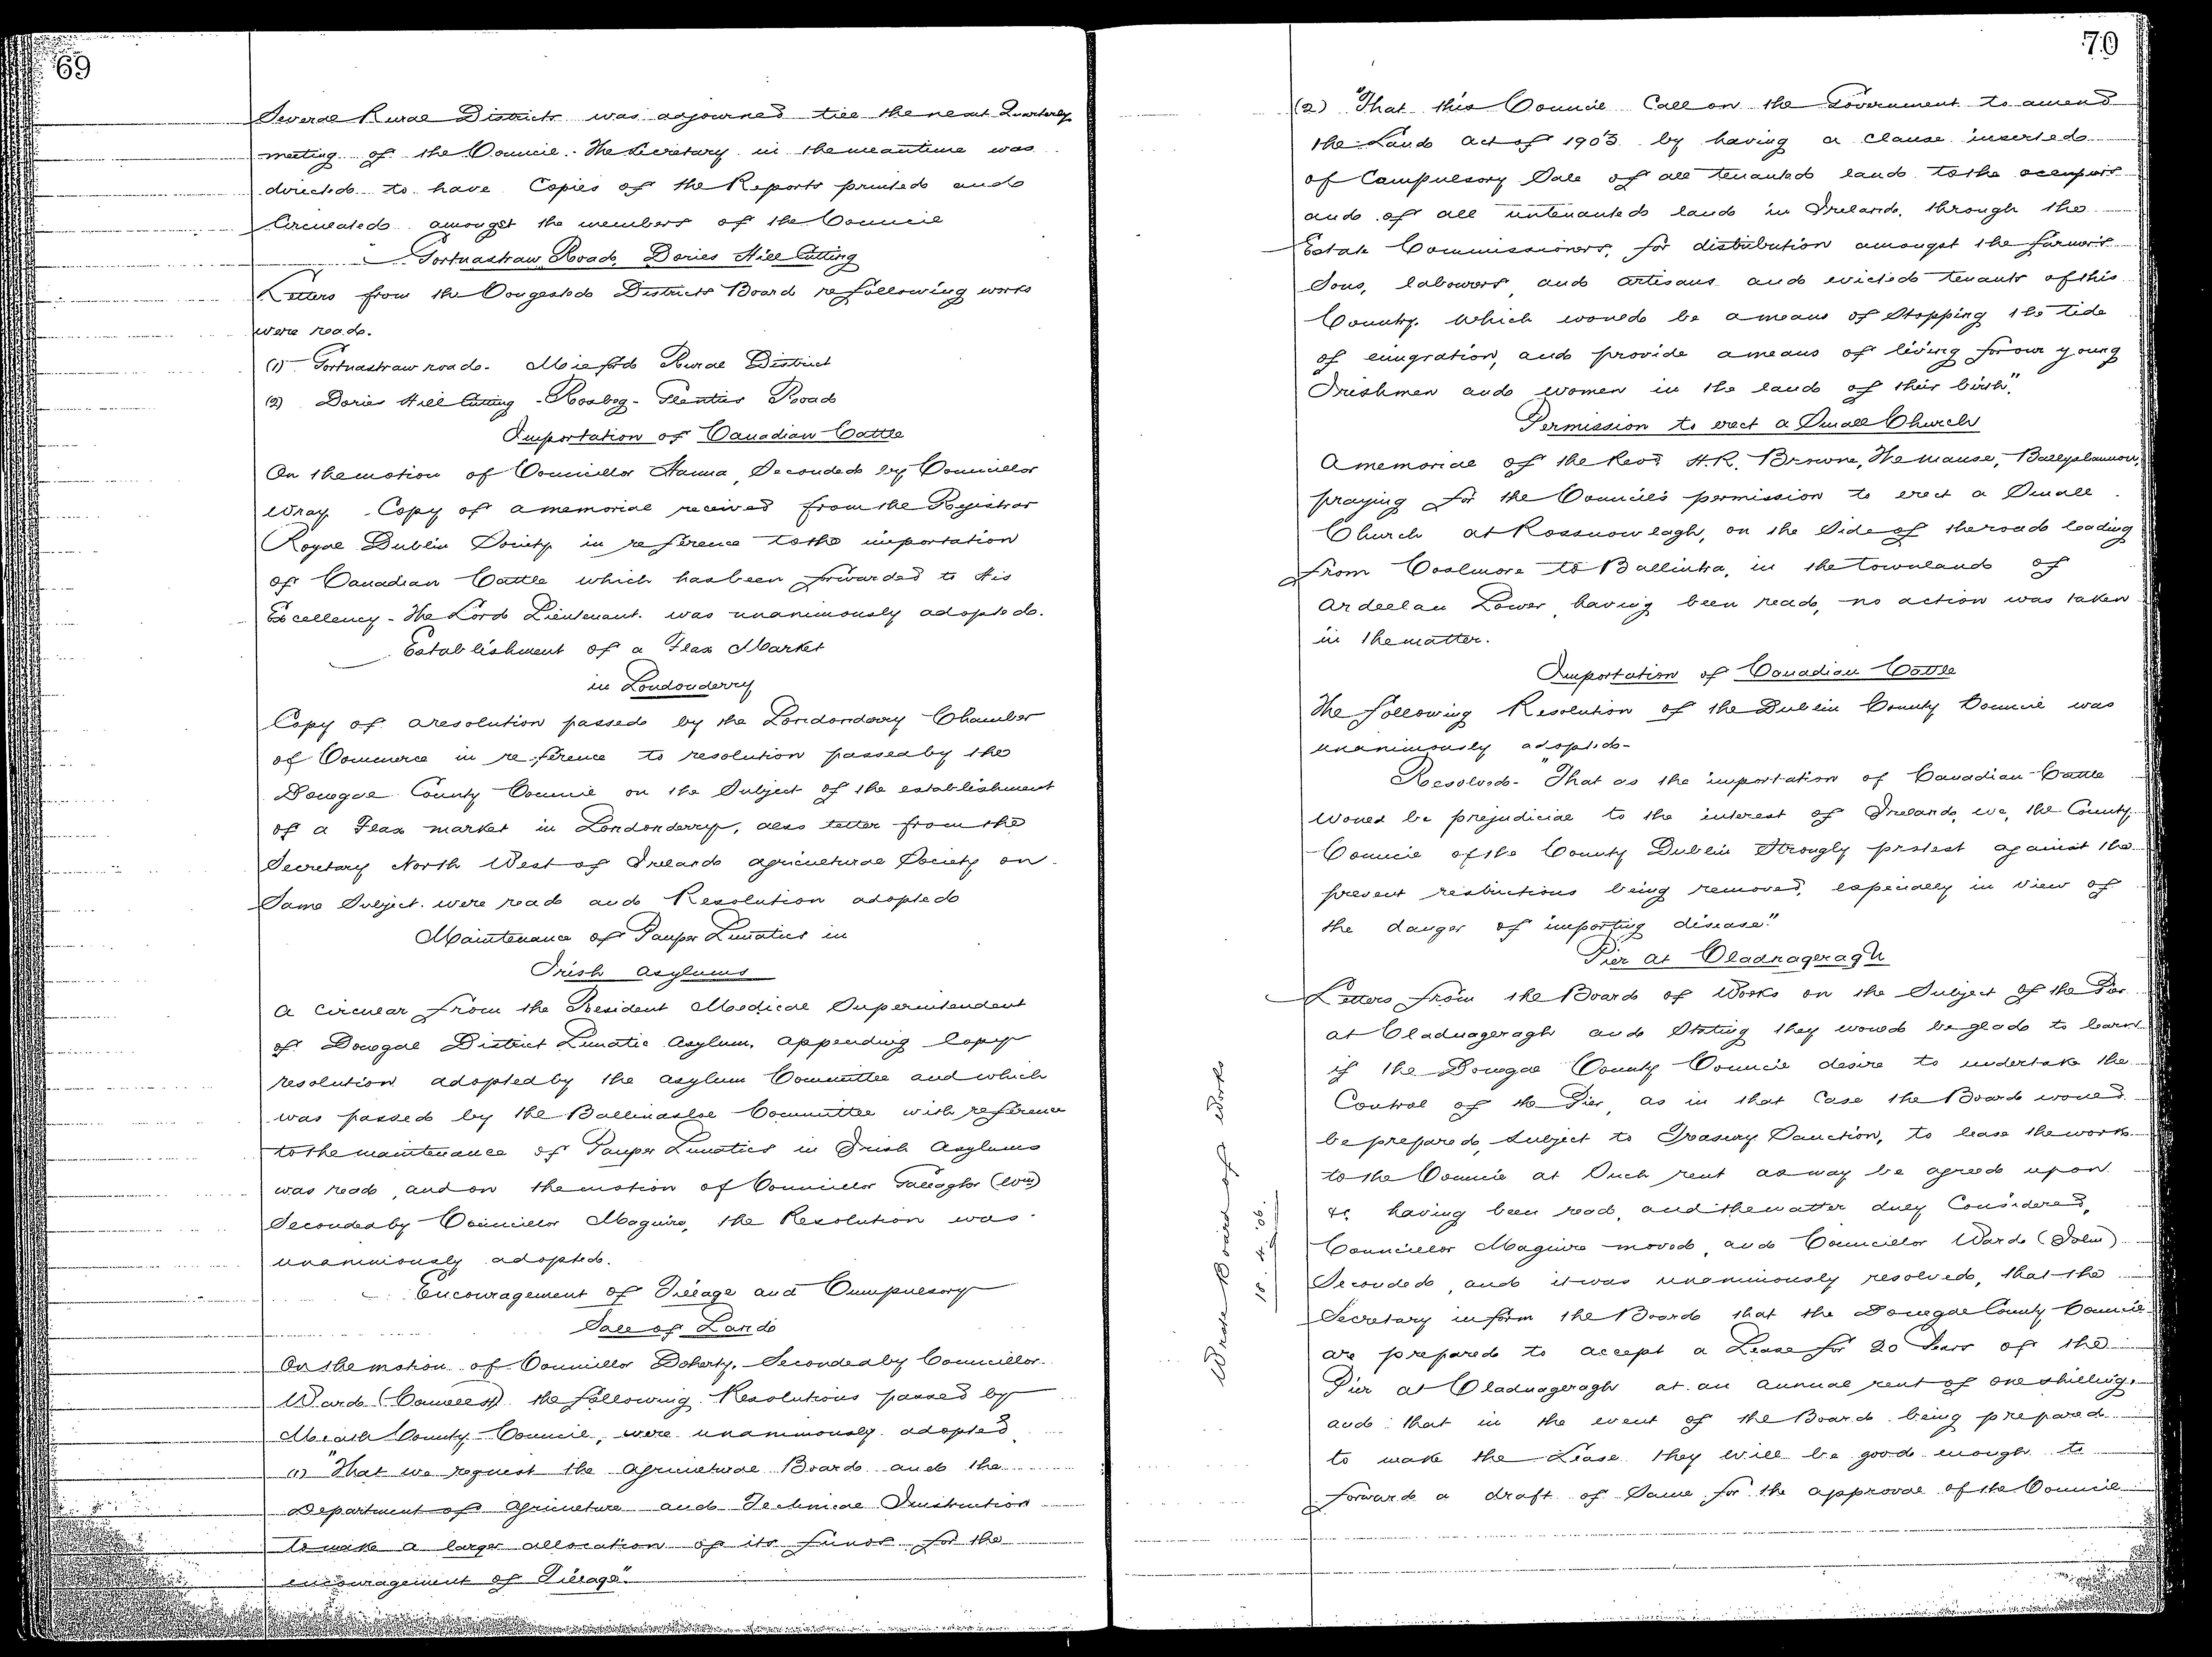 69
Several Rural Districts was adjourned till the next Quarterly
meeting of the Council. The Secretary in the meantime was
directed to have Copies of the Reports printed and
Circulated amongst the members of the Council
Tortnastraw Road, Dories Hill Cutting
Letters from the Congested Districts Board re following works
were read.
(1) Tortnastraw road. Milford Rural District
(2) Dories Hill Cutting - Rosbeg - Glenties Road
Importation of Canadian Cattle
On the motion of Councillor Hanna, Seconded by Councillor
Wray. Copy of a memorial received from the Registrar
Royal Dublin Society in reference to the importation
of Canadian Cattle which has been forwarded to His
Excellency - The Lord Lieutenant. was unanimously adopted.
Establishment of a Flax Market
in Londonderry
Copy of a resolution passed by the Londonderry Chamber
of Commerce in reference to resolution passed by the
Donegal County Council on the Subject of the establishment
of a Flax market in Londonderry, also letter from the
Secretary North West of Ireland agricultural Society on
Same Subject. were read and Resolution adopted
Maintenance of Pauper Lunatics in
Irish Asylums
A Circular from the Resident Medical Superintendent
of Donegal District Lunatic Asylum, appending Copy
resolution adopted by the asylum Committee and which
was passed by the Ballinasloe Committee with reference
to the maintenance of Pauper Lunatics in Irish Asylums
was read, and on the motion of Councillor Gallagher (Wm)
Seconded by Councillor Maguire, the Resolution was
unanimously adopted.
Encouragement of Tillage and Cumpulsory
Sale of Land
On the motion of Councillor Doherty. Seconded by Councillor
Ward (Connell) the following Resolutions passed by
Meath County Council, were unanimously adopted
(1) "That we request the Agricultural Board and the
Department of Agriculture and Technical Instruction
to make a larger allocation of its funds for the
encouragement of Tillage."
70
(2) "That this Council Call on the Government to amend
the Land Act of 1903 by having a Clause inserted
of Compulsory Sale of all tenanted land to the occupiers
and of all untenanted land in Ireland, through the
Estate Commissioners, for distribution amongst the farmers
Sons, labourers, and artisans and evicted tenants of this
Country. Which would be a means of Stopping the tide
of emigration, and provide a means of living for our young
Irishmen and women in the land of their birth".
Permission to erect a Small Church
A memorial of the Revd. H.R. Browne, The manse, Ballyshannon,
praying for the Council's permission to erect a Small
Church at Rossnowlagh, on the Side of the road leading
from Coolmore to Ballintra, in the Townland of
Ardeelan Lower, having been read, no action was taken
in the matter.
Importation of Canadian Cattle
The following Resolution of the Dublin County Council was
unanimously adopted-
Resolved- "That as the importation of Canadian Cattle
would be prejudicial to the interest of Ireland, we, the County
Council of the County Dublin Strongly protest against the
present restrictions being removed, especially in view of
the danger of importing disease."
Pier at Cladnageragh
Letters from the Board of Works on the Subject of the Pier
at Cladnageragh and Stating they would be glad to learn
if the Donegal County Council desire to undertake the
Control of the Pier, as in that Case the Board would
be prepared, Subject to Treasury Sanction, to lease the work
to the Council at Such rent as may be agreed upon
&c having been read, and the matter duly Considered,
Councillor Maguire moved, and Councillor Ward (John)
Seconded, and it was unanimously resolved, that the
Secretary inform the Board that the Donegal County Council
are prepared to accept a Lease for 20 Years of the
Pier at Cladnageragh at an annual rent of one shilling.
and that in the event of the Board being prepared
to make the Lease they will be good enough to
forward a draft of Same for the approval of the Council
Wrote Board of Works
18.4.06.